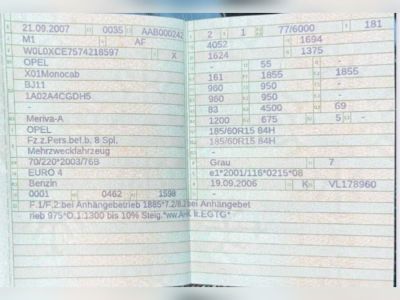 21.09.2007 0035 AAB000242
M1 AF
W0L0XCE7574218597 X
OPEL
X01Monocab
BJ11
1A02A4CGDH5
-
Meriva-A
OPEL
Fz.z.Pers.bef.b. 8 Spl.
Mehrzweckfahrzeug
70/220*2003/76B
EURO 4
Benzin
0001 0462 1598
F.1/F.2:bei Anhängebetrieb 1885*7.2/8.2bei Anhängebet
rieb 975*O.1:1300 bis 10% Steig.*ww.AHK lt.EGTG*
2 1 77/6000 181
4052 1694
1624 1375
- 55 - -
161 1855 1855
960 950 -
960 950 -
83 4500 69
1200 675 5 -
185/60R15 84H
185/60R15 84H
-
Grau 7
e1*2001/116*0215*08
19.09.2006 K VL178960
-